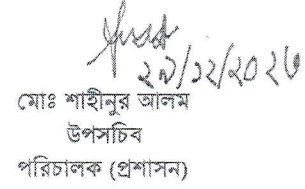 ২৯/১২/২০২৬
মোঃ শাহীনুর আলম
উপসচিব
পরিচালক (প্রশাসন)